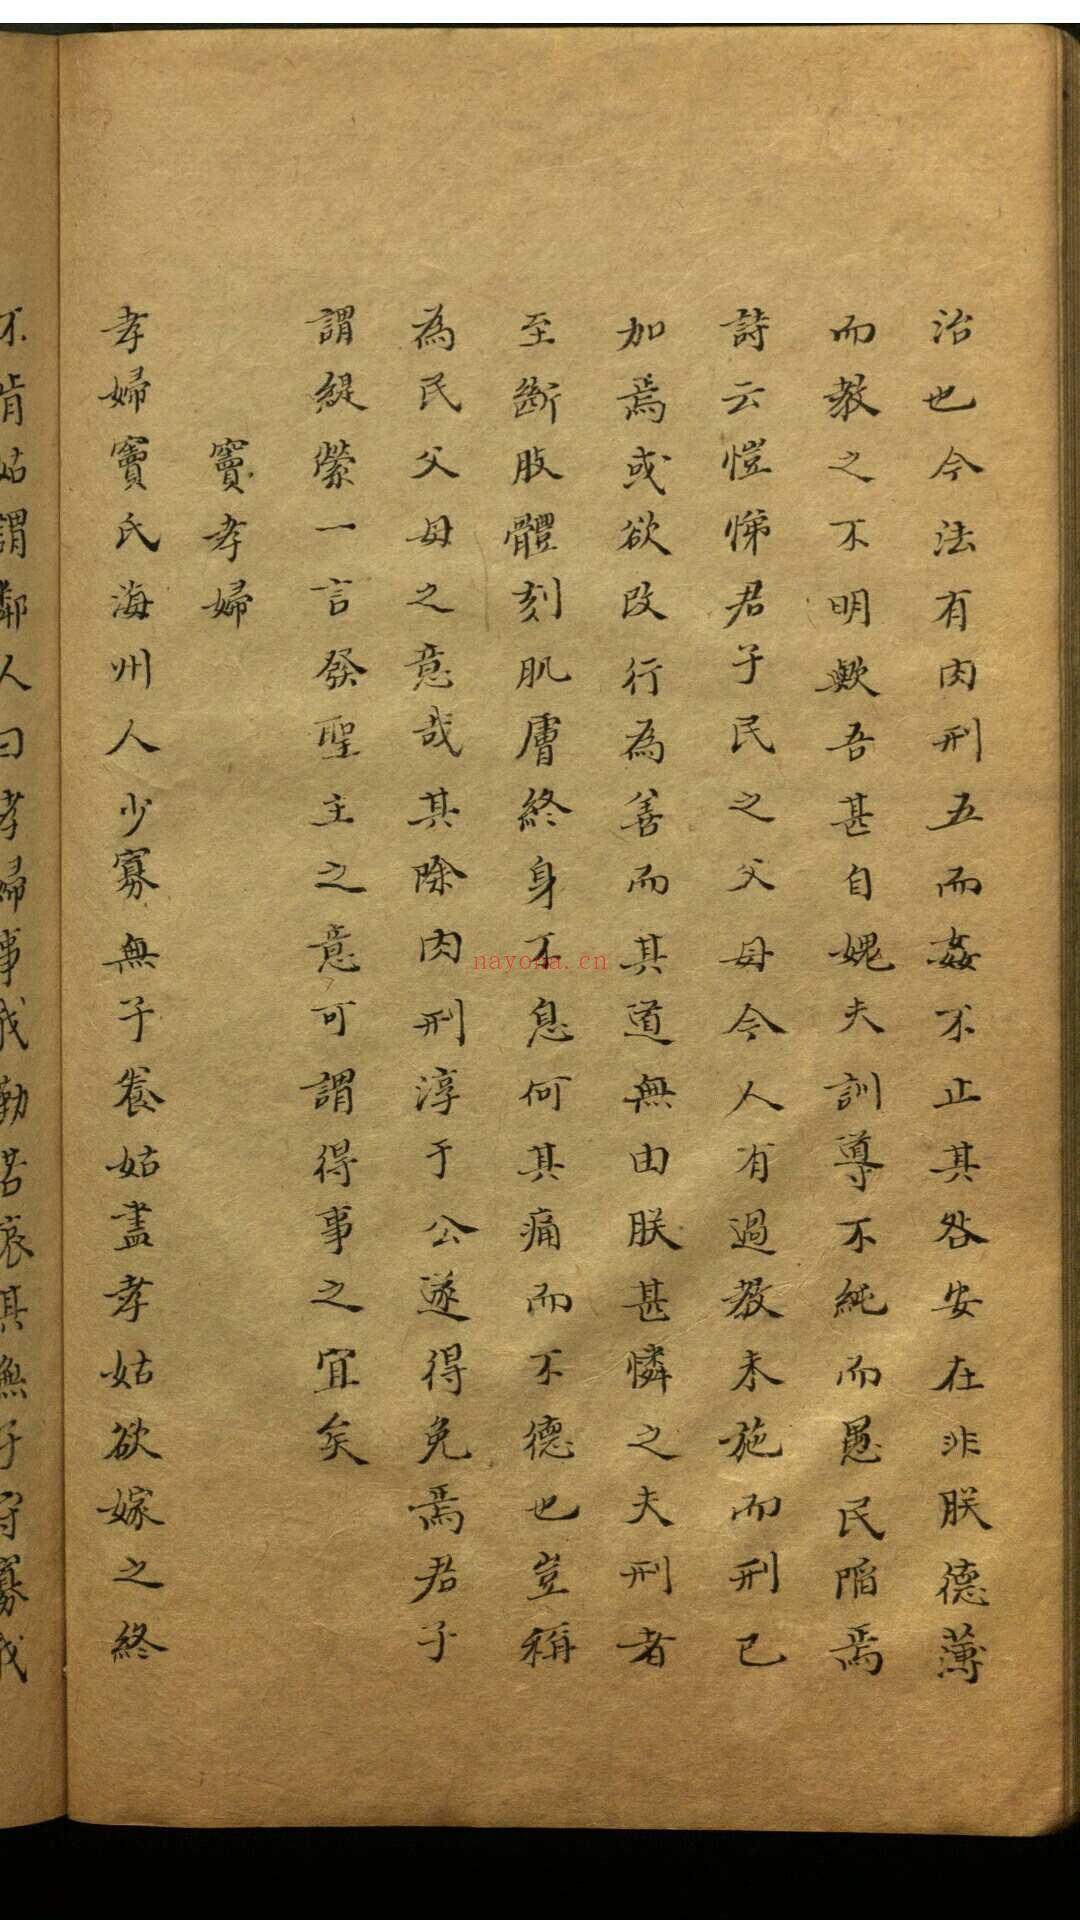 治也今法有肉刑五而姦不止其咎安在非朕德薄
而教之不明歟吾甚自媿夫訓導不純而愚民陷焉
詩云愷悌君子民之父母今人有過教未施而刑已
加焉或欲改行為善而其道無由朕甚憐之夫刑者
至斷肢體刻肌膚終身不息何其痛而不德也豈稱
為民父母之意哉其除肉刑淳于公遂得免焉君子
謂緹縈一言發聖主之意可謂得事之宜矣
竇孝婦
孝婦竇氏海州人少寡無子養姑盡孝姑欲嫁之終
不肯姑謂鄰人曰孝婦事我勤苦哀其無子守寡我
nayona.cn